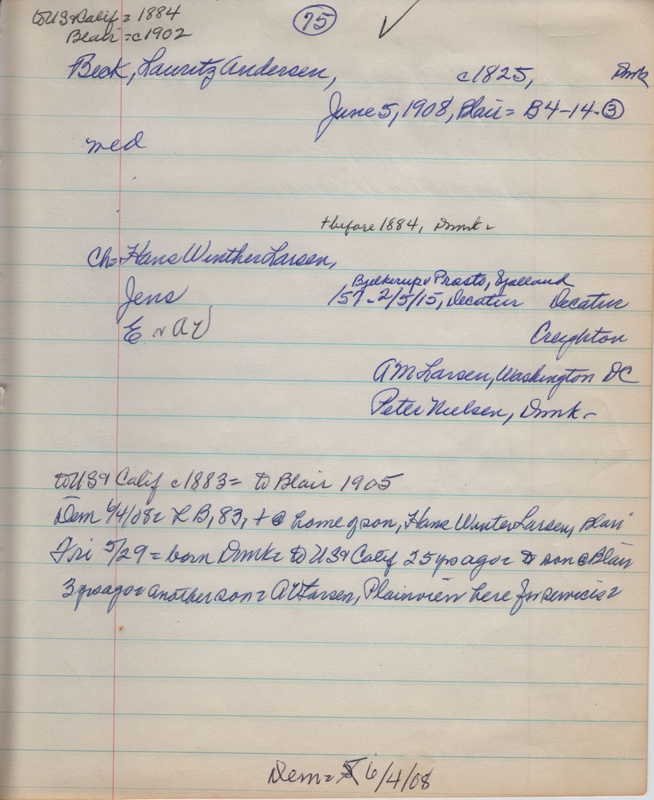 to US & Calif = 1884
Blair = c1902
75
Beck, Lauritz Andersen, c1825, Dmk
June 5, 1908, Blair = B4-14-3
med
+ before 1884, Dmk =
Ch = Hans Winther Larsen,
Bjelkerup v Prasto, Sjalland
Jens 157 - 2/5/15, Decatur Decatur
E v AV Creighton
AM Larsen, Washington DC
Peter Nielsen, Dmk -
to US & Calif c1883 = to Blair 1905
Dem 6/4/08 = LB, 83, + @ home of son, Hans Winter Larsen, Blair
Fri 5/29 = born Dmk = to US & Calif 25 yrs ago = to son @ Blair
3 yrs ago = another son = AV Larsen, Plainview here for services =
Dem = 6/4/08